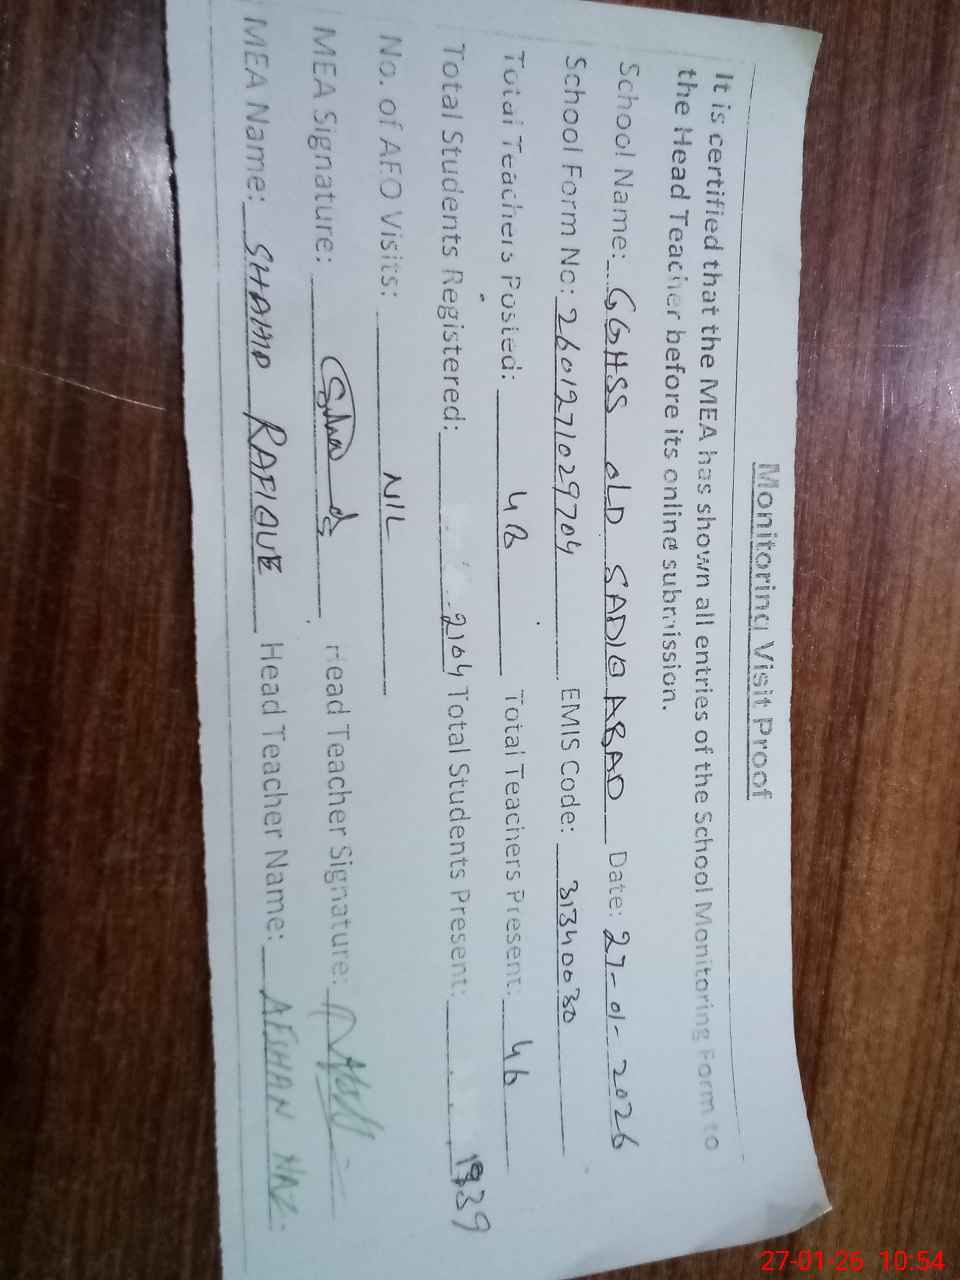 Monitoring Visit Proof
It is certified that the MEA has shown all entries of the School Monitoring Form to
the Head Teacher before its online submission.
School Name: GGHSS OLD SADIQ ABAD Date: 27-01-2026
School Form No: 2601271029704 EMIS Code: 31340030
Total Teachers Posted: Total Teachers Present: 46
Total Students Registered: 2104 Total Students Present: 1939
No. of AEO Visits: NIL
MEA Signature: Head Teacher Signature:
MEA Name: SHAHID RAFIQUE Head Teacher Name: AFSHAN NAZ.
27-01-26 10:54